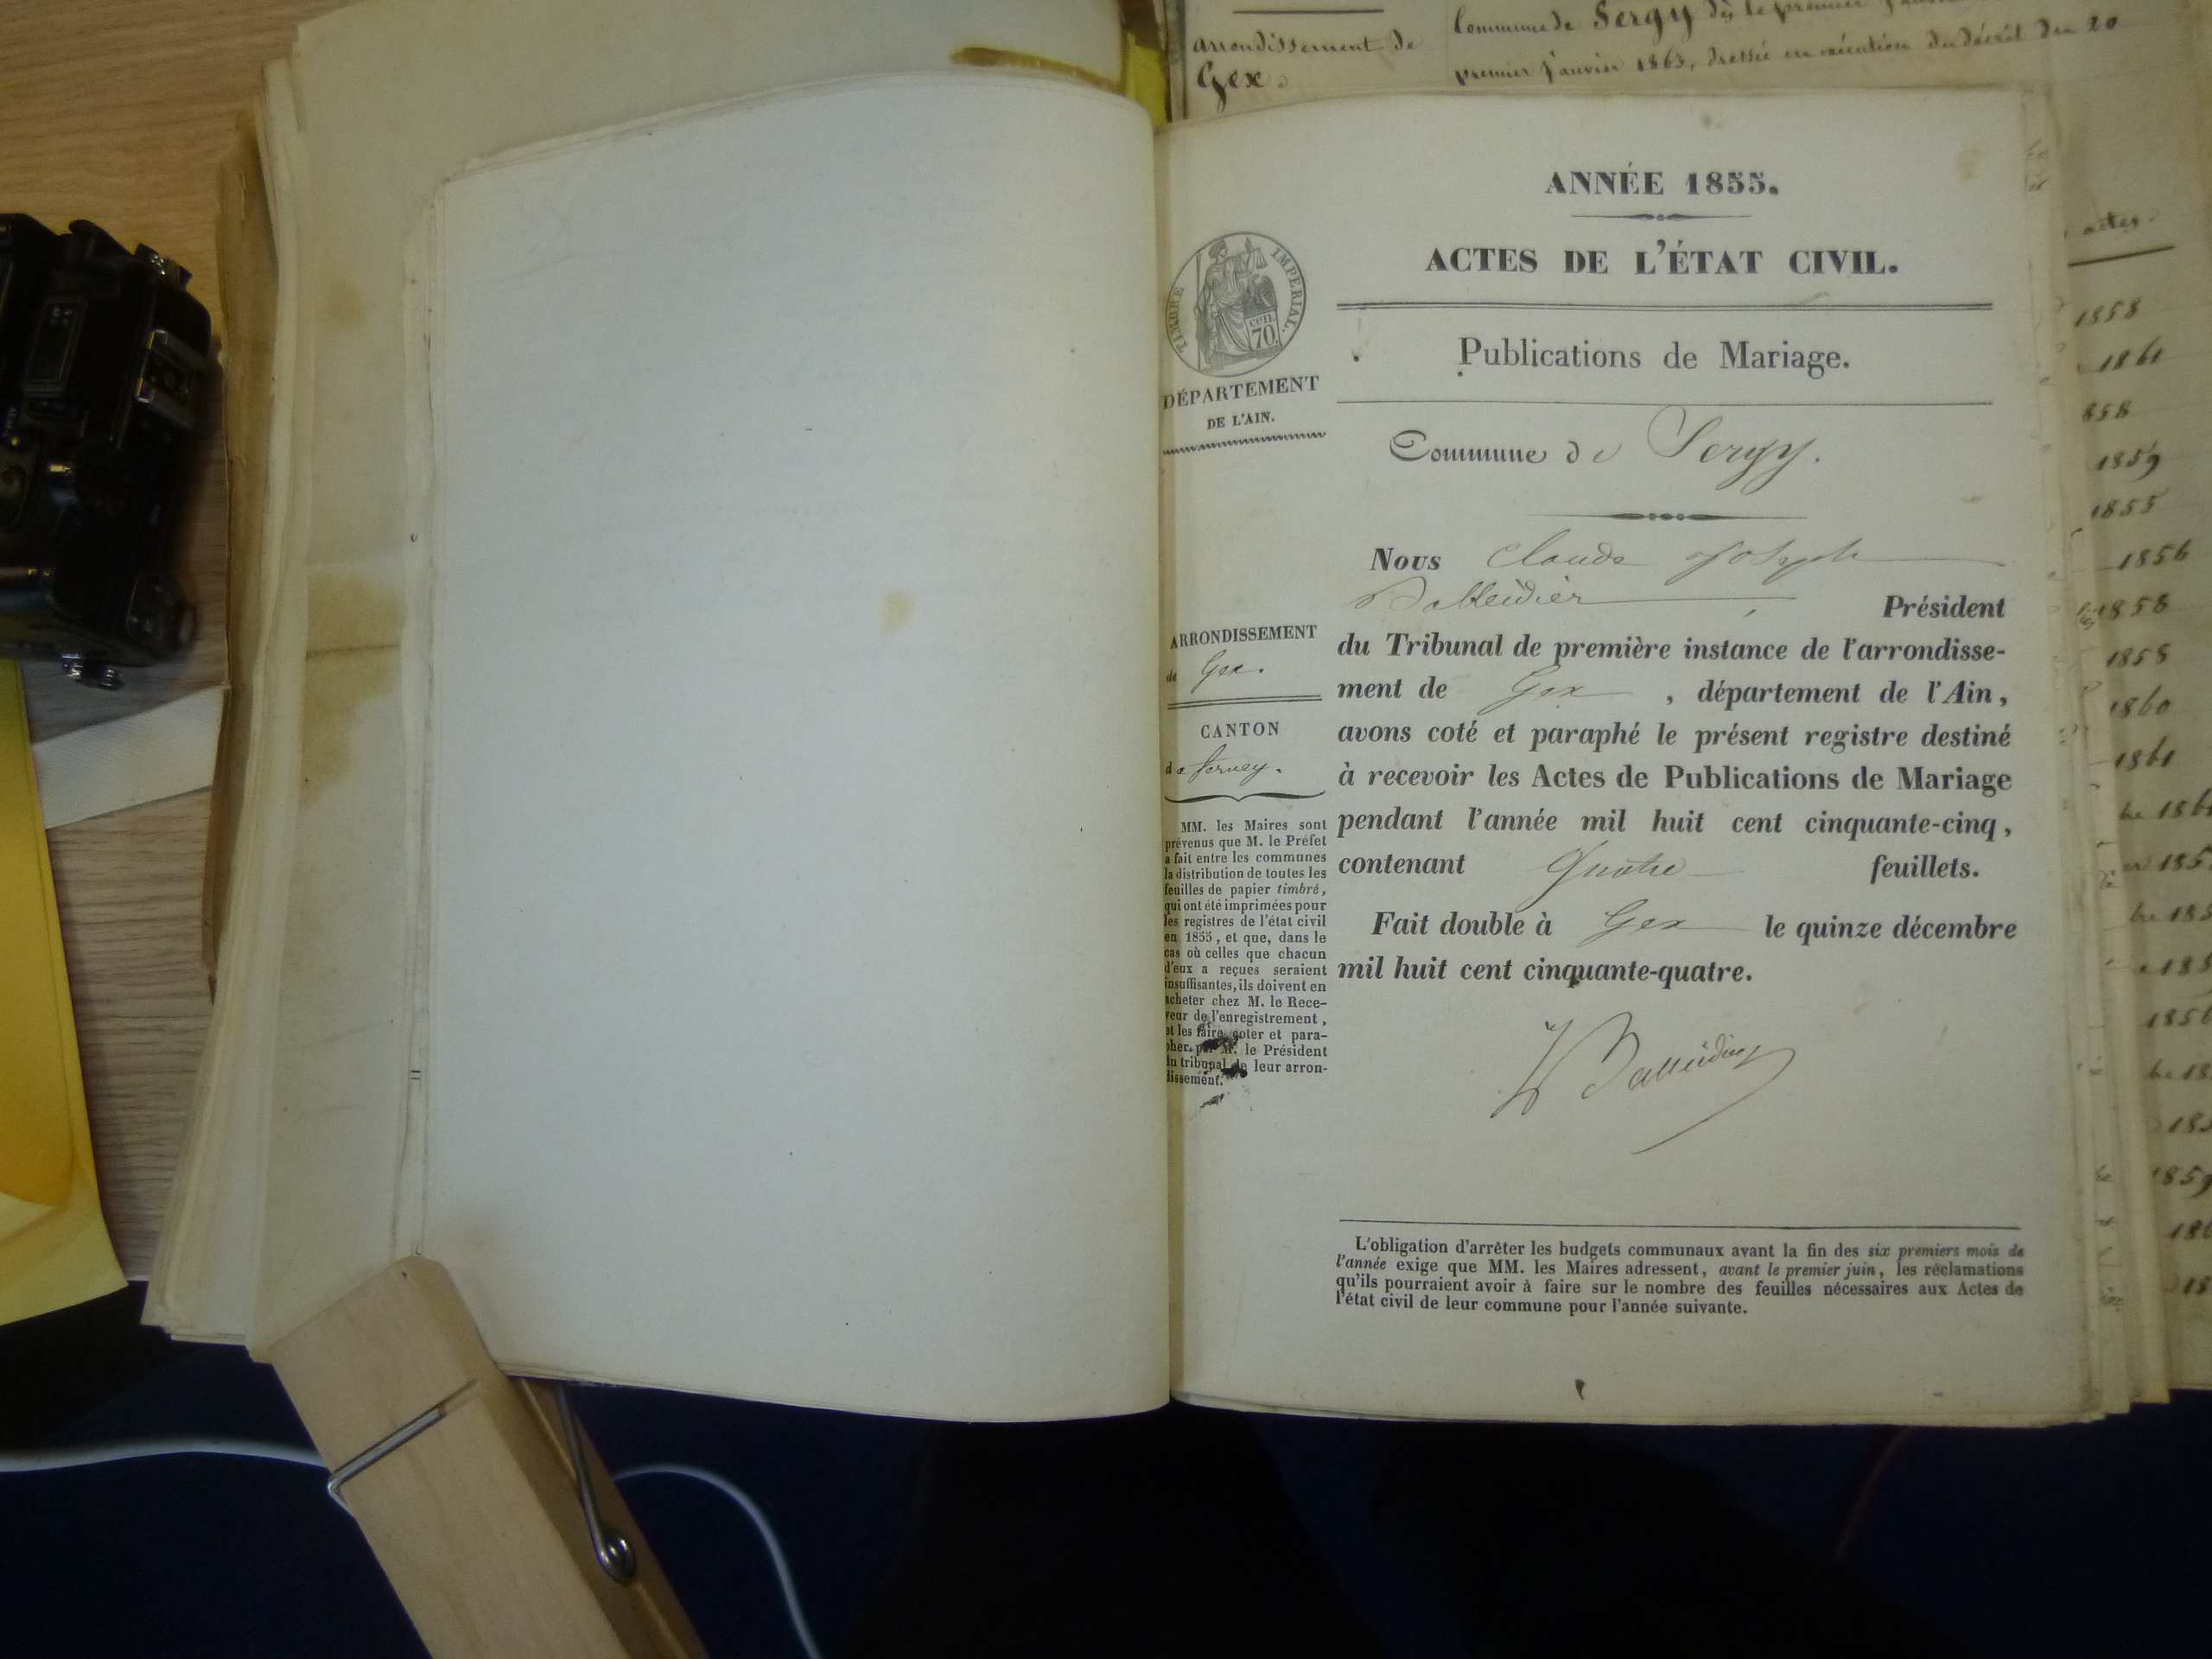 arrondissement de
Gex.
Commune de Sergy dès le premier
premier janvier 1863, dressée en exécution du décret du 20
ANNÉE 1855.
ACTES DE L'ÉTAT CIVIL.
Publications de Mariage.
Commune de Sergy.
TIMBRE IMPERIAL.
cen.
70.
DÉPARTEMENT
DE L'AIN.
ARRONDISSEMENT
de Gex.
CANTON
de Ferney.
MM. les Maires sont
prévenus que M. le Préfet
a fait entre les communes
la distribution de toutes les
feuilles de papier timbré,
qui ont été imprimées pour
les registres de l'état civil
en 1855, et que, dans le
cas où celles que chacun
d'eux a reçues seraient
insuffisantes, ils doivent en
acheter chez M. le Rece-
veur de l'enregistrement,
et les faire coter et para-
pher par M. le Président
du tribunal de leur arron-
dissement.
Nous Claude Joseph
Balleidier Président
du Tribunal de première instance de l'arrondisse-
ment de Gex, département de l'Ain,
avons coté et paraphé le présent registre destiné
à recevoir les Actes de Publications de Mariage
pendant l'année mil huit cent cinquante-cinq,
contenant Quatre feuillets.
Fait double à Gex le quinze décembre
mil huit cent cinquante-quatre.
Balleidier
L'obligation d'arrêter les budgets communaux avant la fin des six premiers mois de
l'année exige que MM. les Maires adressent, avant le premier juin, les réclamations
qu'ils pourraient avoir à faire sur le nombre des feuilles nécessaires aux Actes de
l'état civil de leur commune pour l'année suivante.
actes.
1858
1861
858
1859
1855
1856
1858
1858
1860
1861